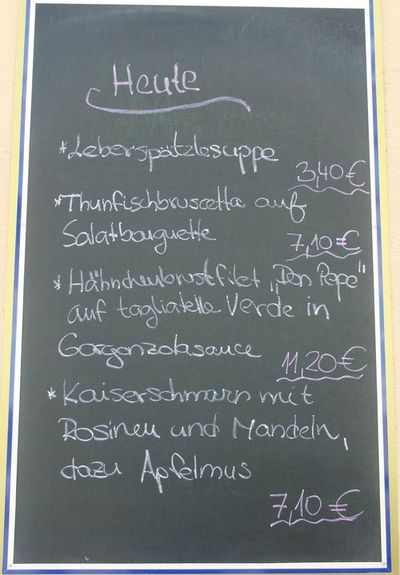 Heute
*Leberspätzlesuppe
3,40€
*Thunfischbruscetta auf
Salatbouquette
7,10€
* Hähnchenbrustfilet „Don Pepe"
auf tagliatelle Verde in
Gorgonzolasauce
11,20€
* Kaiserschmarn mit
Rosinen und Mandeln,
dazu Apfelmus
7,10 €